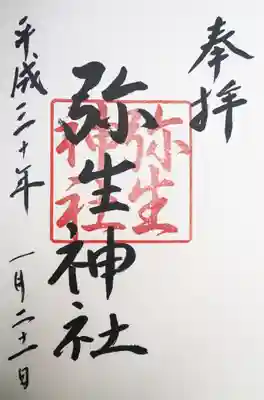 奉拝
弥生
神社
弥生神社
平成三十年 一月二十一日